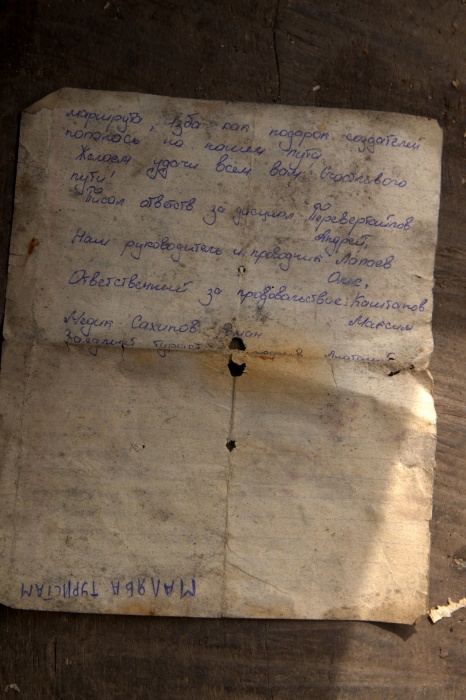 маршрута, Изба как подарок создателей
попалась на нашем пути.
Желаем удачи всем вам счастливого
пути!
Писал ответств за дисципл Перевертайлов
Андрей,
Наш руководитель и проводник Лапаев
Олег,
Ответственный за продовольствие: Каштанов
Максим
Медик Сахипов
турист Анатолий
МАЛЯВА ТУРИСТАМ